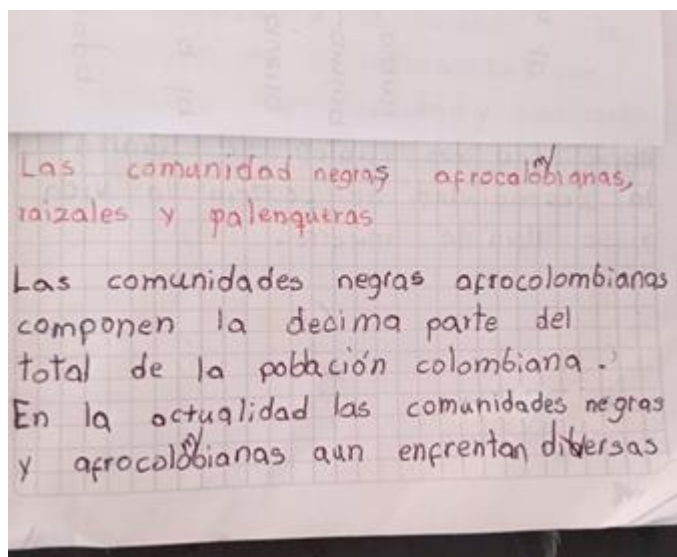 Las comunidad negras afrocalombianas,
raizales y palenqueras
Las comunidades negras afrocolombianas
componen la decima parte del
total de la población colombiana.
En la actualidad las comunidades negras
y afrocolombianas aun enfrentan diversas